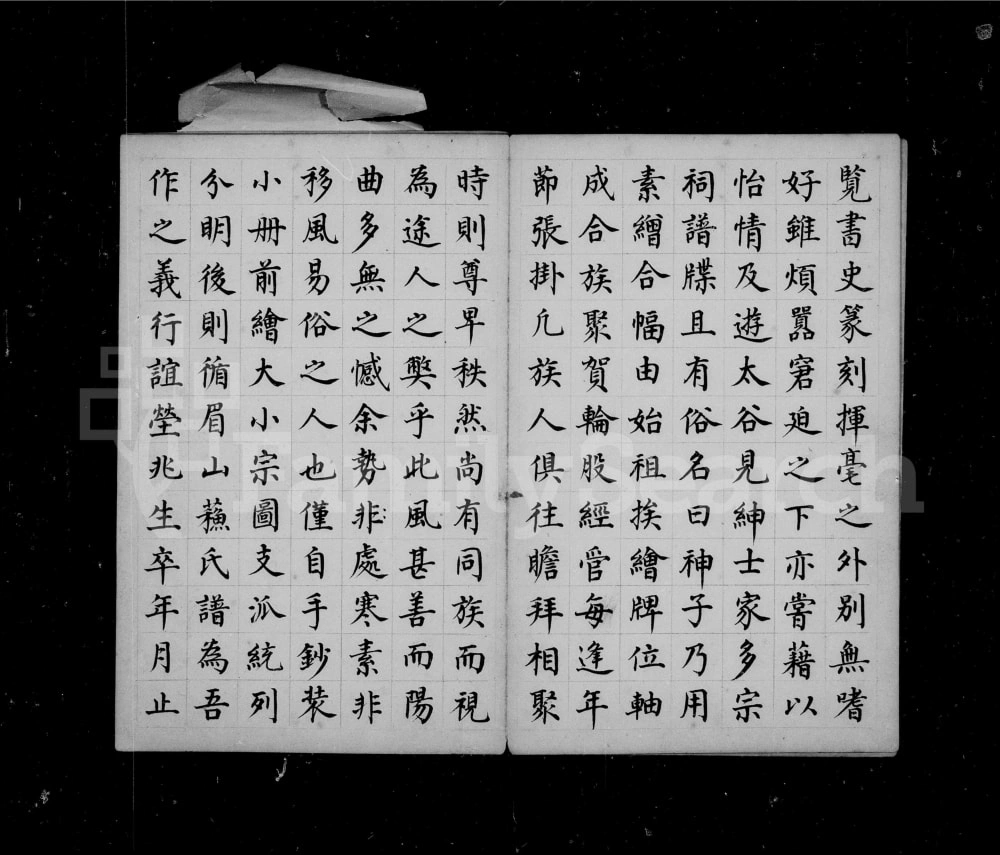 覽書史篆刻揮毫之外別無嗜
好雖煩囂窘迫之下亦嘗藉以
怡情及遊太谷見紳士家多宗
祠譜牒且有俗名曰神子乃用
素繒合幅由始祖挨繪牌位軸
成合族聚賀輪股經管每逢年
節張掛凡族人俱往瞻拜相聚
時則尊卑秩然尚有同族而視
為途人之弊乎此風甚善而陽
曲多無之憾余勢非處寒素非
移風易俗之人也僅自手鈔裝
小册前繪大小宗圖支派統列
分明後則循眉山蘓氏譜為吾
作之義行誼塋兆生卒年月止
FamilySearch